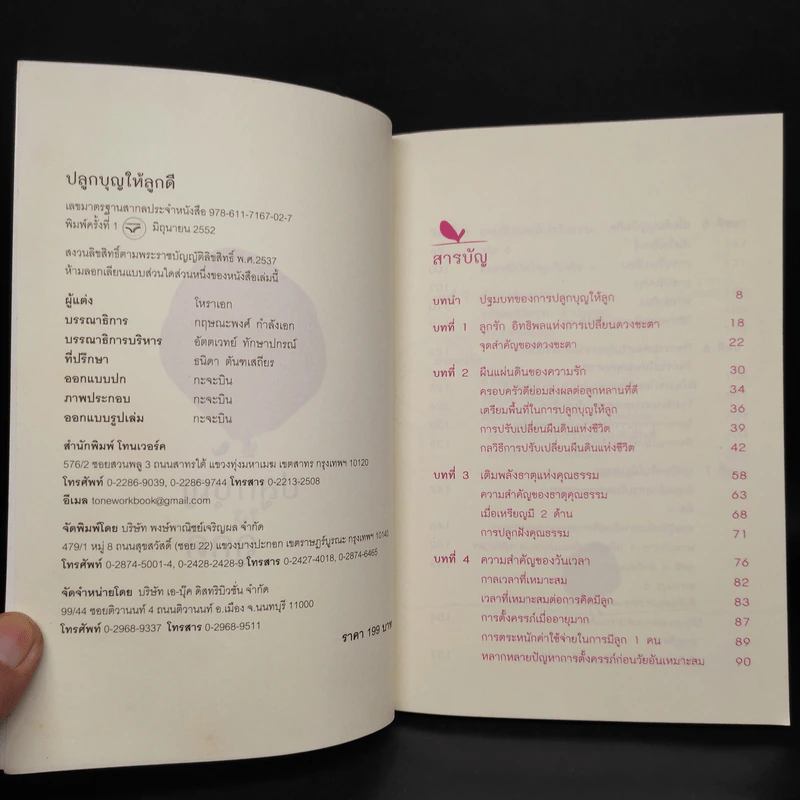 ปลูกบุญให้ลูกดี
เลขมาตรฐานสากลประจำหนังสือ 978-611-7167-02-7
พิมพ์ครั้งที่ 1 มิถุนายน 2552
สงวนลิขสิทธิ์ตามพระราชบัญญัติลิขสิทธิ์ พ.ศ.2537
ห้ามลอกเลียนแบบส่วนใดส่วนหนึ่งของหนังสือเล่มนี้
ผู้แต่ง โหราเอก
บรรณาธิการ กฤษณะพงศ์ กำลังเอก
บรรณาธิการบริหาร อัตตเวทย์ ทักษาปกรณ์
ที่ปรึกษา ธนิดา ตันฑเสถียร
ออกแบบปก กะจะบิน
ภาพประกอบ กะจะบิน
ออกแบบรูปเล่ม กะจะบิน
สำนักพิมพ์ โทนเวอร์ค
576/2 ซอยสวนพลู 3 ถนนสาทรใต้ แขวงทุ่งมหาเมฆ เขตสาทร กรุงเทพฯ 10120
โทรศัพท์ 0-2286-9039, 0-2286-9744 โทรสาร 0-2213-2508
อีเมล toneworkbook@gmail.com
จัดพิมพ์โดย บริษัท พงษ์พาณิชย์เจริญผล จำกัด
479/1 หมู่ 8 ถนนสุขสวัสดิ์ (ซอย 22) แขวงบางปะกอก เขตราษฎร์บูรณะ กรุงเทพฯ 10140
โทรศัพท์ 0-2874-5001-4, 0-2428-2428-9 โทรสาร 0-2427-4018, 0-2874-6465
จัดจำหน่ายโดย บริษัท เอ-บุ๊ค ดิสทริบิวชั่น จำกัด
99/44 ซอยติวานนท์ 4 ถนนติวานนท์ อ.เมือง จ.นนทบุรี 11000
โทรศัพท์ 0-2968-9337 โทรสาร 0-2968-9511
ราคา 199 บาท
สารบัญ
บทนำ ปฐมบทของการปลูกบุญให้ลูก 8
บทที่ 1 ลูกรัก อิทธิพลแห่งการเปลี่ยนดวงชะตา 18
จุดสำคัญของดวงชะตา 22
บทที่ 2 ผืนแผ่นดินของความรัก 30
ครอบครัวดีย่อมส่งผลต่อลูกหลานที่ดี 34
เตรียมพื้นที่ในการปลูกบุญให้ลูก 36
การปรับเปลี่ยนผืนดินแห่งชีวิต 39
กลวิธีการปรับเปลี่ยนผืนดินแห่งชีวิต 42
บทที่ 3 เติมพลังธาตุแห่งคุณธรรม 58
ความสำคัญของธาตุคุณธรรม 63
เมื่อเหรียญมี 2 ด้าน 68
การปลูกฝังคุณธรรม 71
บทที่ 4 ความสำคัญของวันเวลา 76
กาลเวลาที่เหมาะสม 82
เวลาที่เหมาะสมต่อการคิดมีลูก 83
การตั้งครรภ์เมื่ออายุมาก 87
การตระหนักค่าใช้จ่ายในการมีลูก 1 คน 89
หลากหลายปัญหาการตั้งครรภ์ก่อนวัยอันเหมาะสม 90